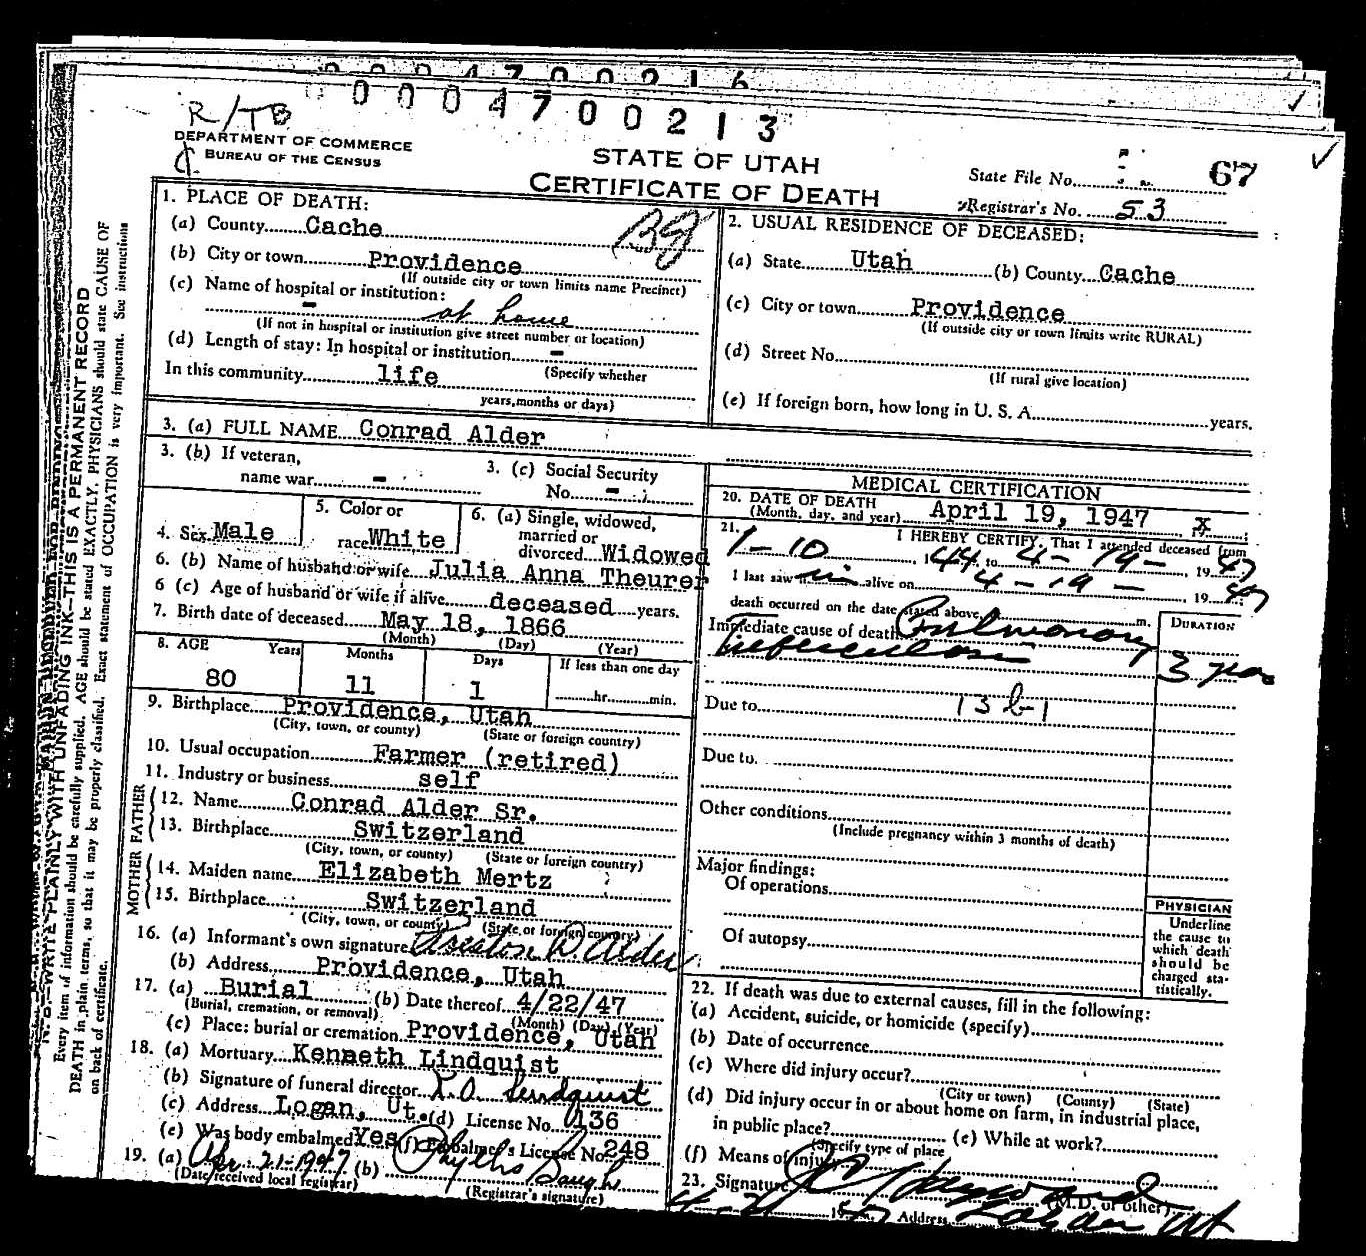 0 0 0 4 7 0 0 2 1 6
0 0 0 4 7 0 0 2 1 3
R/TB
DEPARTMENT OF COMMERCE
BUREAU OF THE CENSUS
STATE OF UTAH
CERTIFICATE OF DEATH
State File No. 67
Registrar's No. 53
1. PLACE OF DEATH:
(a) County Cache
(b) City or town Providence
(If outside city or town limits name Precinct)
(c) Name of hospital or institution:
- at home
(If not in hospital or institution give street number or location)
(d) Length of stay: In hospital or institution -
(Specify whether
In this community life
years, months or days)
2. USUAL RESIDENCE OF DECEASED:
(a) State Utah (b) County Cache
(c) City or town Providence
(If outside city or town limits write RURAL)
(d) Street No.
(If rural give location)
(e) If foreign born, how long in U. S. A. years.
3. (a) FULL NAME Conrad Alder
3. (b) If veteran,
name war -
3. (c) Social Security
No. -
4. Sex Male
5. Color or
race White
6. (a) Single, widowed,
married or
divorced Widowed
6. (b) Name of husband or wife Julia Anna Theurer
6 (c) Age of husband or wife if alive deceased years.
7. Birth date of deceased May 18, 1866
(Month) (Day) (Year)
8. AGE Years Months Days If less than one day
80 11 1 hr. min.
9. Birthplace Providence, Utah
(City, town, or county) (State or foreign country)
10. Usual occupation Farmer (retired)
11. Industry or business self
FATHER
12. Name Conrad Alder Sr.
13. Birthplace Switzerland
(City, town, or county) (State or foreign country)
MOTHER
14. Maiden name Elizabeth Mertz
15. Birthplace Switzerland
(City, town, or county) (State or foreign country)
16. (a) Informant's own signature Alder
(b) Address Providence, Utah
17. (a) Burial (b) Date thereof 4/22/47
(Burial, cremation, or removal) (Month) (Day) (Year)
(c) Place: burial or cremation Providence, Utah
18. (a) Mortuary Kenneth Lindquist
(b) Signature of funeral director K.O. Lindquist
(c) Address Logan, Ut. (d) License No. 136
(e) Was body embalmed Yes (f) Embalmer's License No. 248
19. (a) Apr. 21-1947 (b) Phyllis Baugh
(Date received local registrar) (Registrar's signature)
MEDICAL CERTIFICATION
20. DATE OF DEATH
(Month, day, and year) April 19, 1947 x
21. I HEREBY CERTIFY, That I attended deceased from
1-10, 1944 to 4-19-, 1947
I last saw him alive on 4-19-, 1947
death occurred on the date stated above m.
Immediate cause of death Pulmonary
tuberculosis
DURATION
3 yrs
Due to 13 b-1
Due to
Other conditions
(Include pregnancy within 3 months of death)
Major findings:
Of operations
Of autopsy
PHYSICIAN
Underline
the cause to
which death
should be
charged sta-
tistically.
22. If death was due to external causes, fill in the following:
(a) Accident, suicide, or homicide (specify)
(b) Date of occurrence
(c) Where did injury occur?
(City or town) (County) (State)
(d) Did injury occur in or about home on farm, in industrial place,
in public place? (e) While at work?
(Specify type of place
(f) Means of injury
23. Signature (M.D. or other)
4-21 1947 Address Logan Ut
WRITE PLAINLY WITH UNFADING INK—THIS IS A PERMANENT RECORD
Every item of information should be carefully supplied. AGE should be stated EXACTLY. PHYSICIANS should state CAUSE OF
DEATH in plain terms, so that it may be properly classified. Exact statement of OCCUPATION is very important. See instructions
on back of certificate.